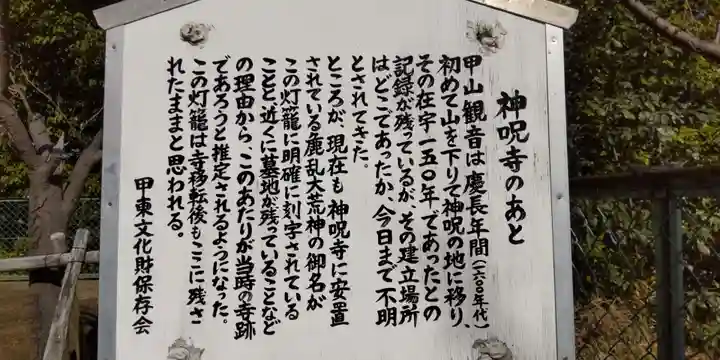 神呪寺のあと
甲山観音は慶長年間(一六〇〇年代)
初めて山を下りて神呪の地に移り、
その在宇一五〇年であったとの
記録が残っているが、その建立場所
はどこであったか、今日まで不明
とされてきた。
ところが、現在も神呪寺に安置
されている麁乱大荒神の御名が
この灯籠に明確に刻字されている
ことと近くに墓地が残っていることなど
の理由から、このあたりが当時の寺跡
であろうと推定されるようになった。
この灯籠は寺移転後もここに残さ
れたままと思われる。
甲東文化財保存会